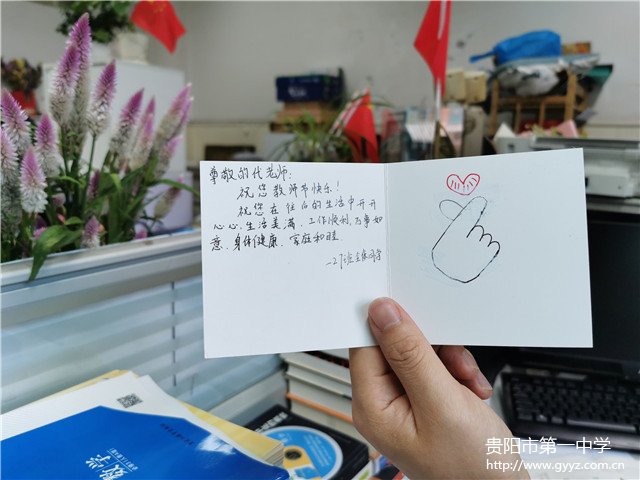 尊敬的代老师：
祝您教师节快乐！
祝您在往后的生活中开开
心心，生活美满，工作顺利，万事如
意，身体健康，家庭和睦.
—27班全体同学
贵阳市第一中学
http://www.gyyz.com.cn